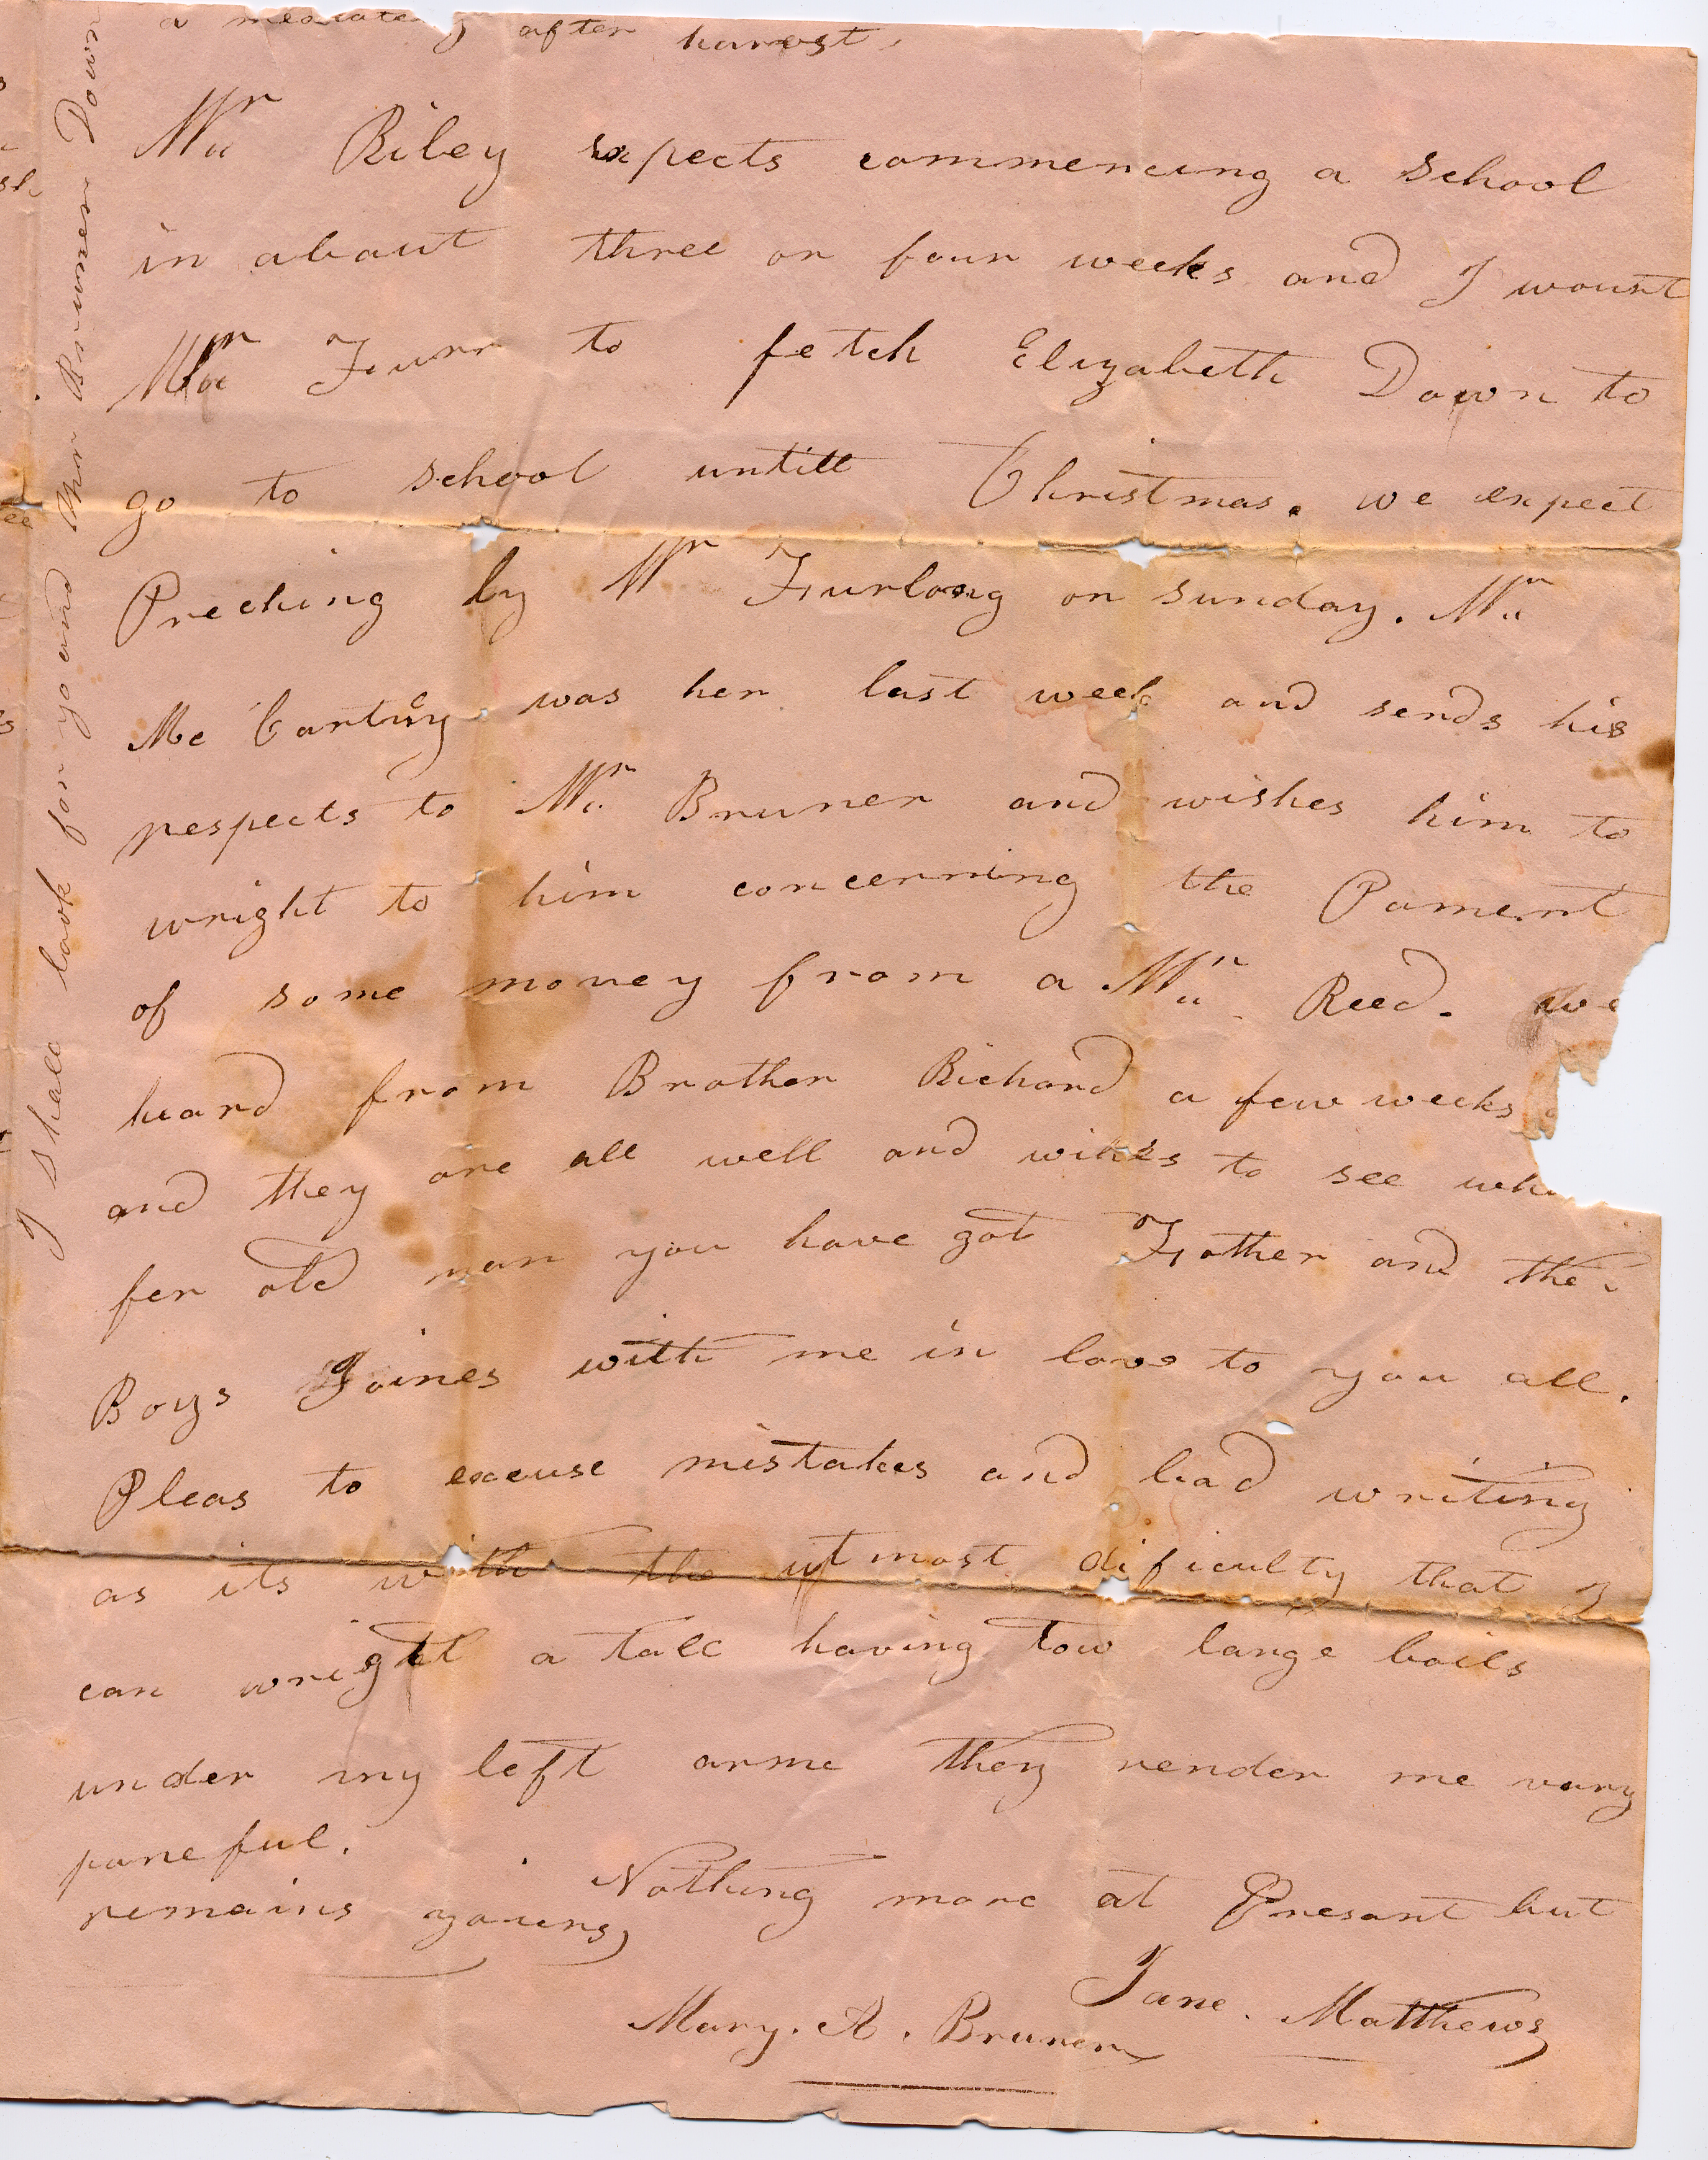 after harvest,
Mr Riley expects commencing a school
in about three or four weeks and I wount
Mr Furr to fetch Elizabeth Down to
go to school untill Christmas. we expect
Preching by Mr Furlong on sunday. Mr
Mc Cartny was her last week and sends his
respects to Mr Bruner and wishes him to
wright to him concerning the Pament
of some money from a Mr Reed. we
heard from Brother Richard a few weeks
and they are all well and wihes to see
fer old man you have got Father and the
Boys Joines with me in love to you all.
Pleas to excuse mistakes and bad writing
as its with the utmost dificulty that I
can wright a tall having tow large boils
under my left arme they render me vary
paneful.
Nothing more at Presant but
remains yours,
Jane. Matthews
Mary. A. Bruner
I Shall look for yo and Mr Brunner Down